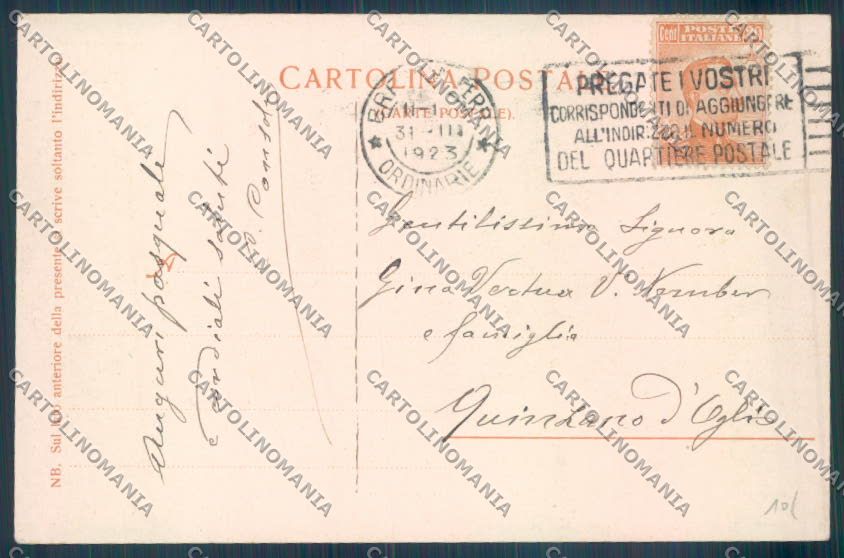 CARTOLINA POSTALE
(CARTE POSTALE).
Cent
POSTE
ITALIANE
FERR
31-III
1923
ORDINARIE
PREGATE I VOSTRI
CORRISPONDENTI DI AGGIUNGERE
ALL'INDIRIZZO IL NUMERO
DEL QUARTIERE POSTALE
NB. Sul lato anteriore della presente si scrive soltanto l'indirizzo
Auguri pasquale
e cordiali saluti
Gentilissima Signora
Gina Vertua V.
e famiglia
Quinzano d'Oglio
CARTOLINOMANIA